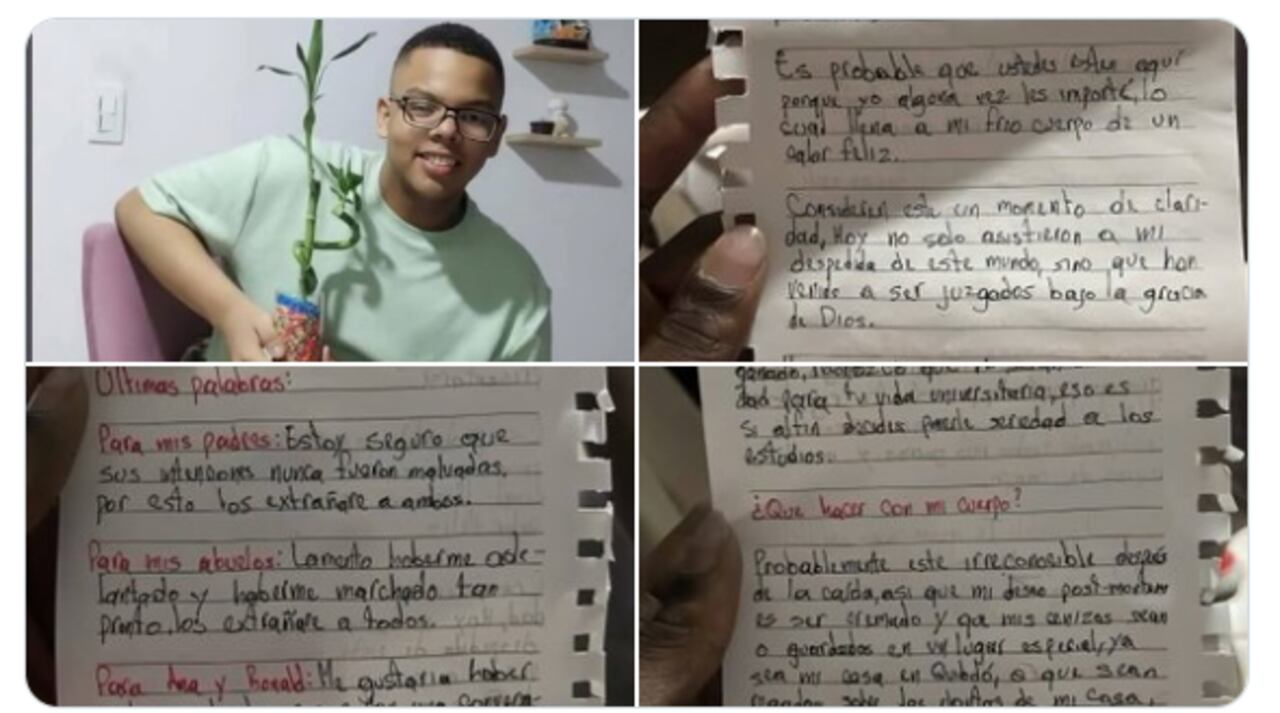 Es probable que ustedes esten aquí
porque yo alguna vez les importé, lo
cual llena a mi frio cuerpo de un
calor feliz.
Consideren este un momento de clari-
dad, Hoy no solo asistieron a mi
despedida de este mundo, sino que han
venido a ser juzgados bajo la gracia
de Dios.
Últimas palabras:
Para mis padres: Estoy seguro que
sus intenciones nunca fueron malvadas,
por esto los extrañare a ambos.
Para mis abuelos: Lamento haberme ade-
lantado y haberme marchado tan
pronto, los extrañare a todos.
Para Ana y Ronald: Me gustaria haber
dad para tu vida universitaria, eso es
si al fin decides ponerle seriedad a los
estudios.
¿Que hacer con mi cuerpo?
Probablemente este irreconosible después
de la caída, asi que mi deseo post-mortem
es ser cremado y que mis cenizas sean
o guardadas en un lugar especial, ya
sea mi casa en Quibdó, o que sean
sobre los de mi casa,